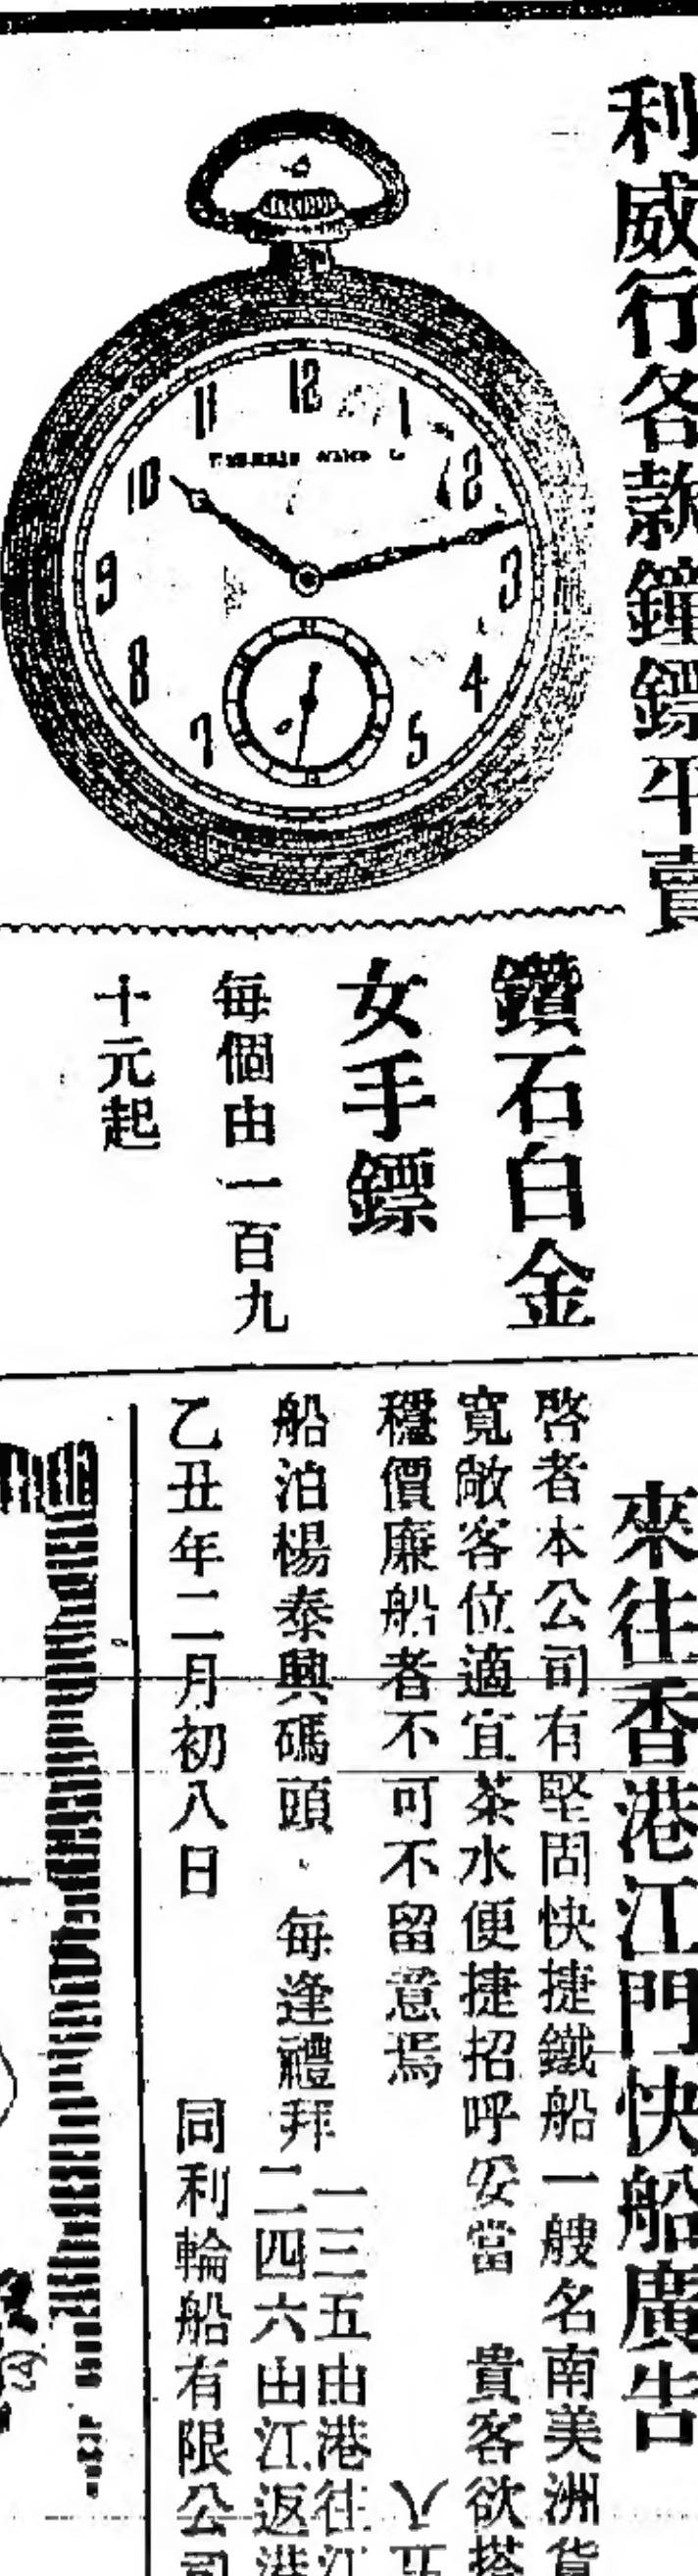 利威行各款鐘鏢平賣
12
1
2
3
4
5
7
8
9
10
11
鑽石白金
女手鏢
每個由一百九
十元起
來往香港江門快船廣告
啓者本公司有堅固快捷鐵船一艘名南美洲貨
寬敞客位適宜茶水便捷招呼妥當 貴客欲搭
穩價廉船者不可不留意焉
船泊楊泰興碼頭 每逢禮拜
一三五由港往江
二四六由江返港
乙丑年二月初八日 同利輪船有限公司
八五